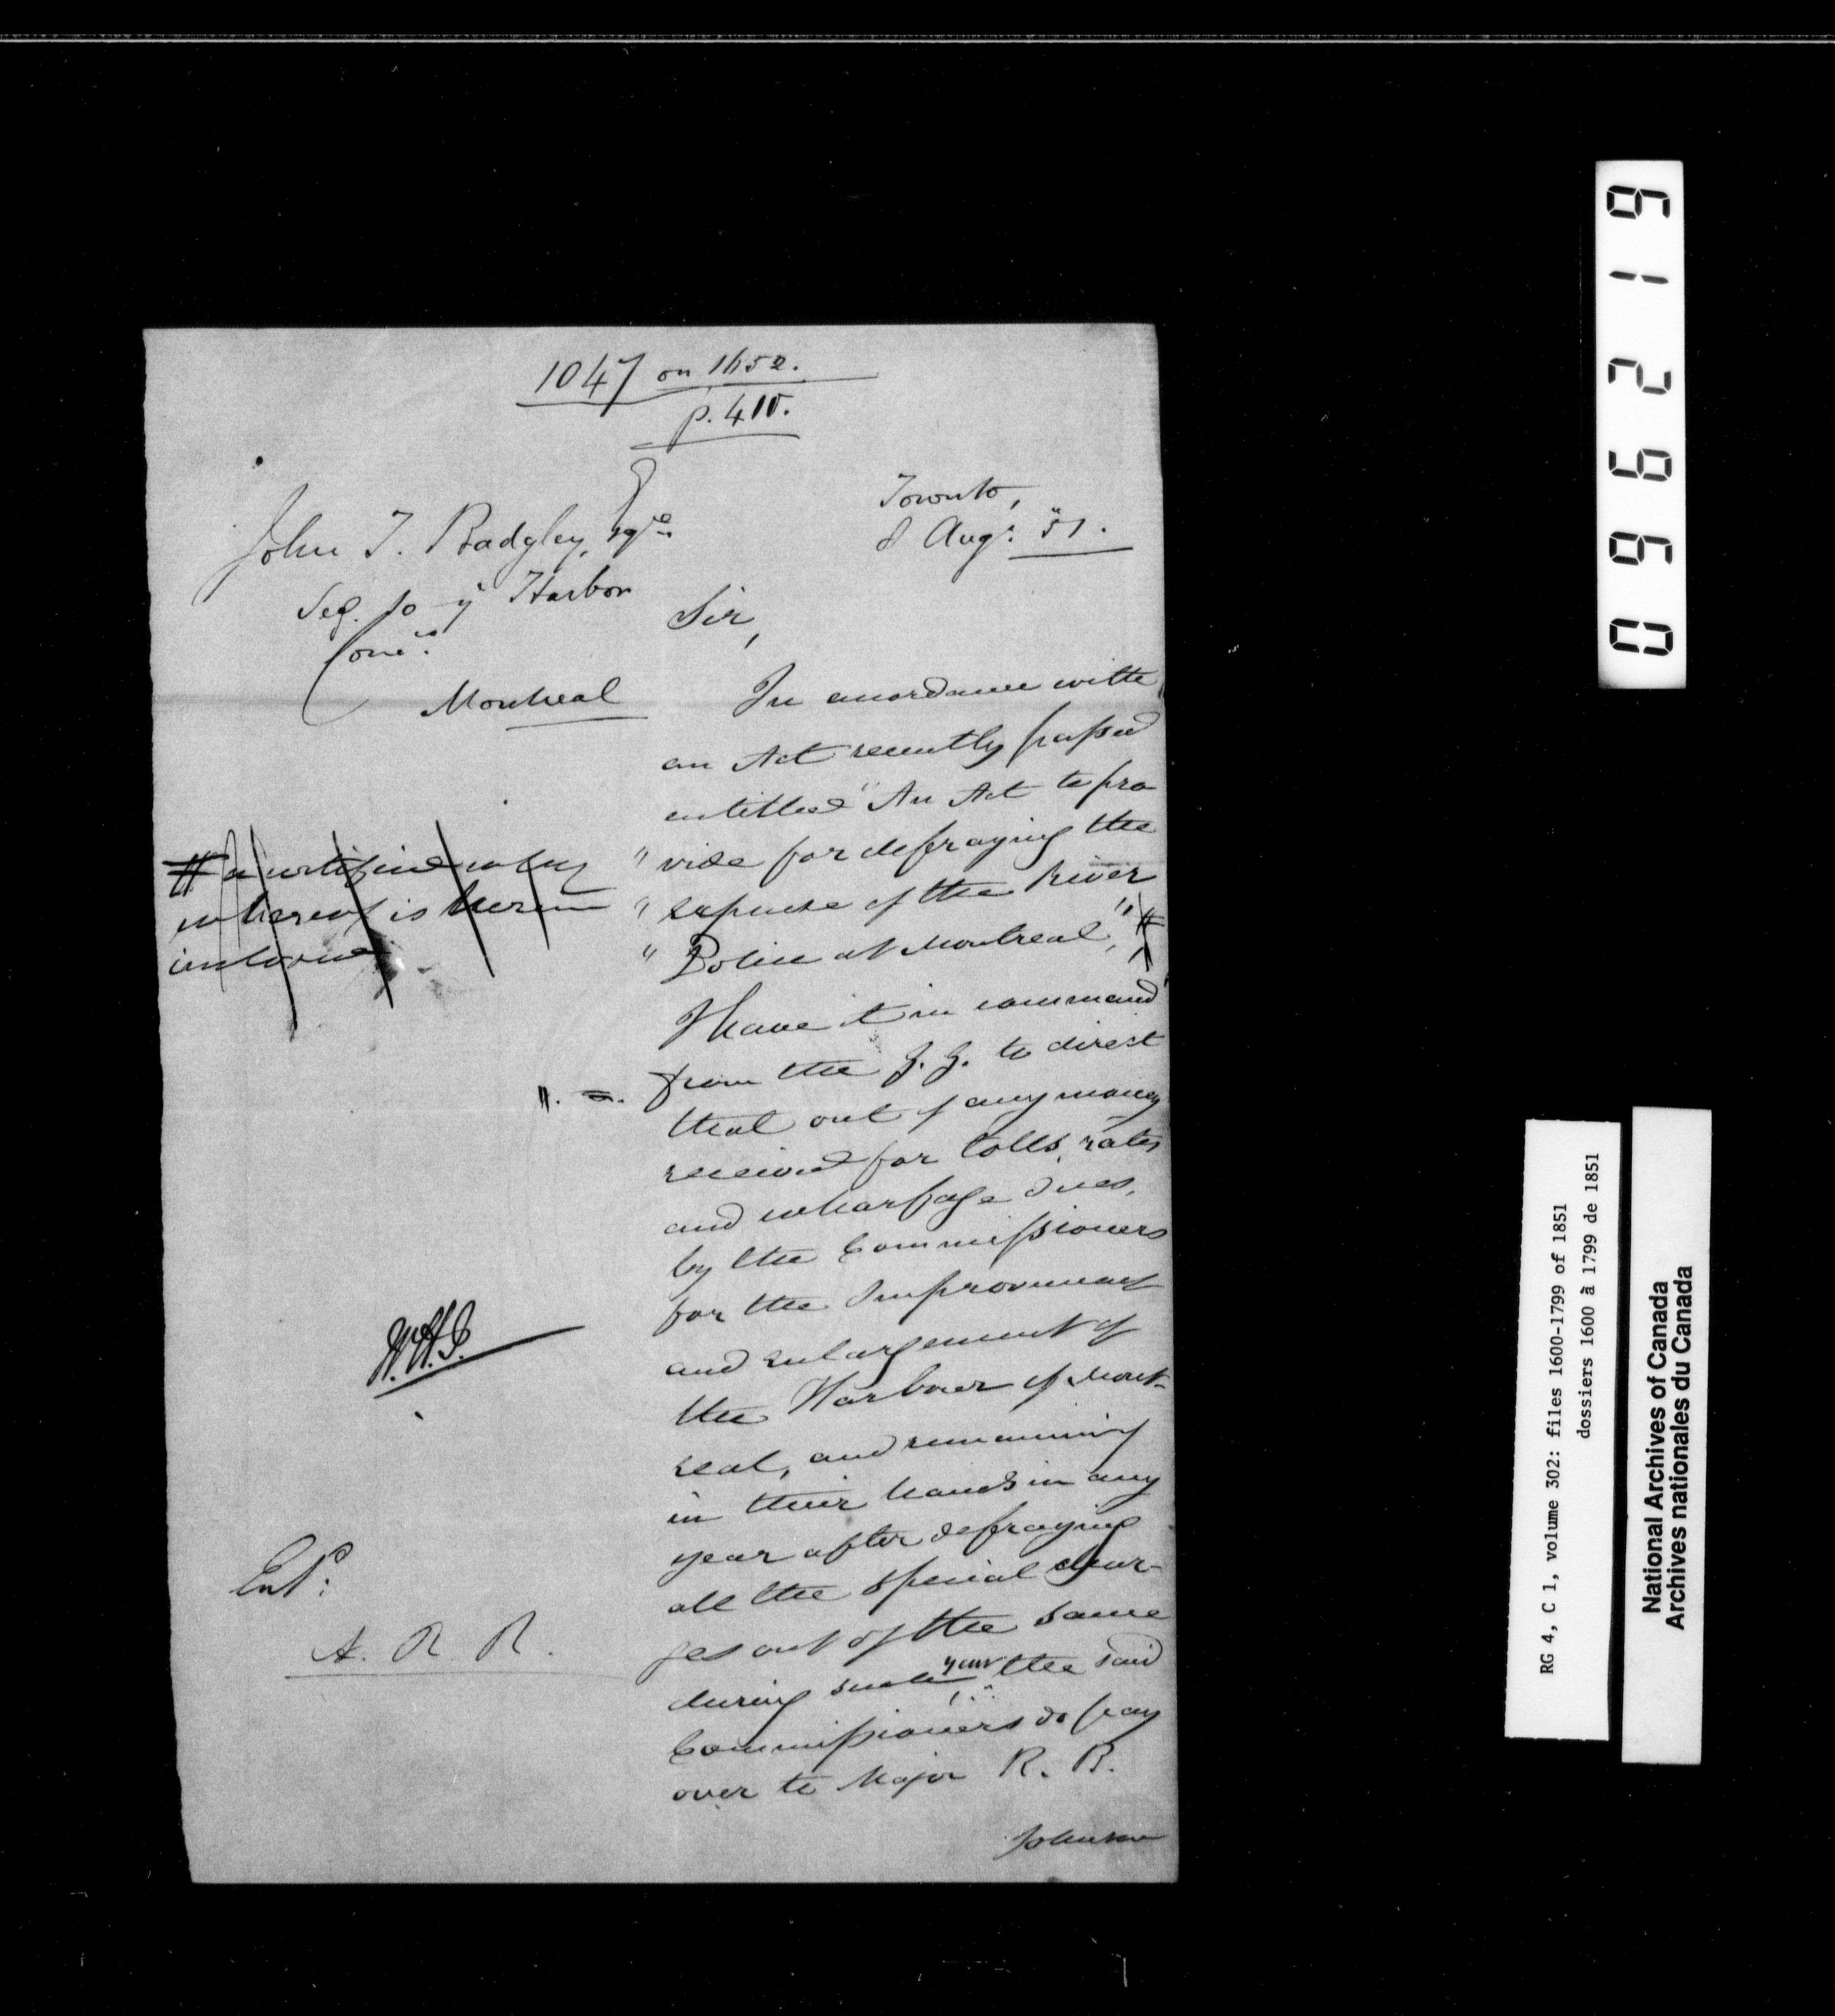 1047 on 1652.
p. 410.
Toronto,
8 Augt. "51.
John T. Badgley, Esqre
Secy. to ye Harbor
Comrs.
Montreal
Sir,
In accordance with
an Act recently passed
entitled "An Act to pro
" vide for defraying the
" expense of the River
" Police at Montreal," #
# a certified copy
whereof is herein
inclosed
I have it in command
from the G. G. to direct
that out of any money
received for tolls, rates
and wharfage dues,
by the Commissioners
for the Improvement
and enlargement of
the Harbour of Mont-
real, and remaining
in their hands in any
year after defraying
all the special char-
ges out of the same
during such year the said
Commissioners do pay
over to Major R. B.
Johnson
Entd:
A. R. R.
096219
RG 4, C 1, volume 302: files 1600-1799 of 1851
dossiers 1600 à 1799 de 1851
National Archives of Canada
Archives nationales du Canada